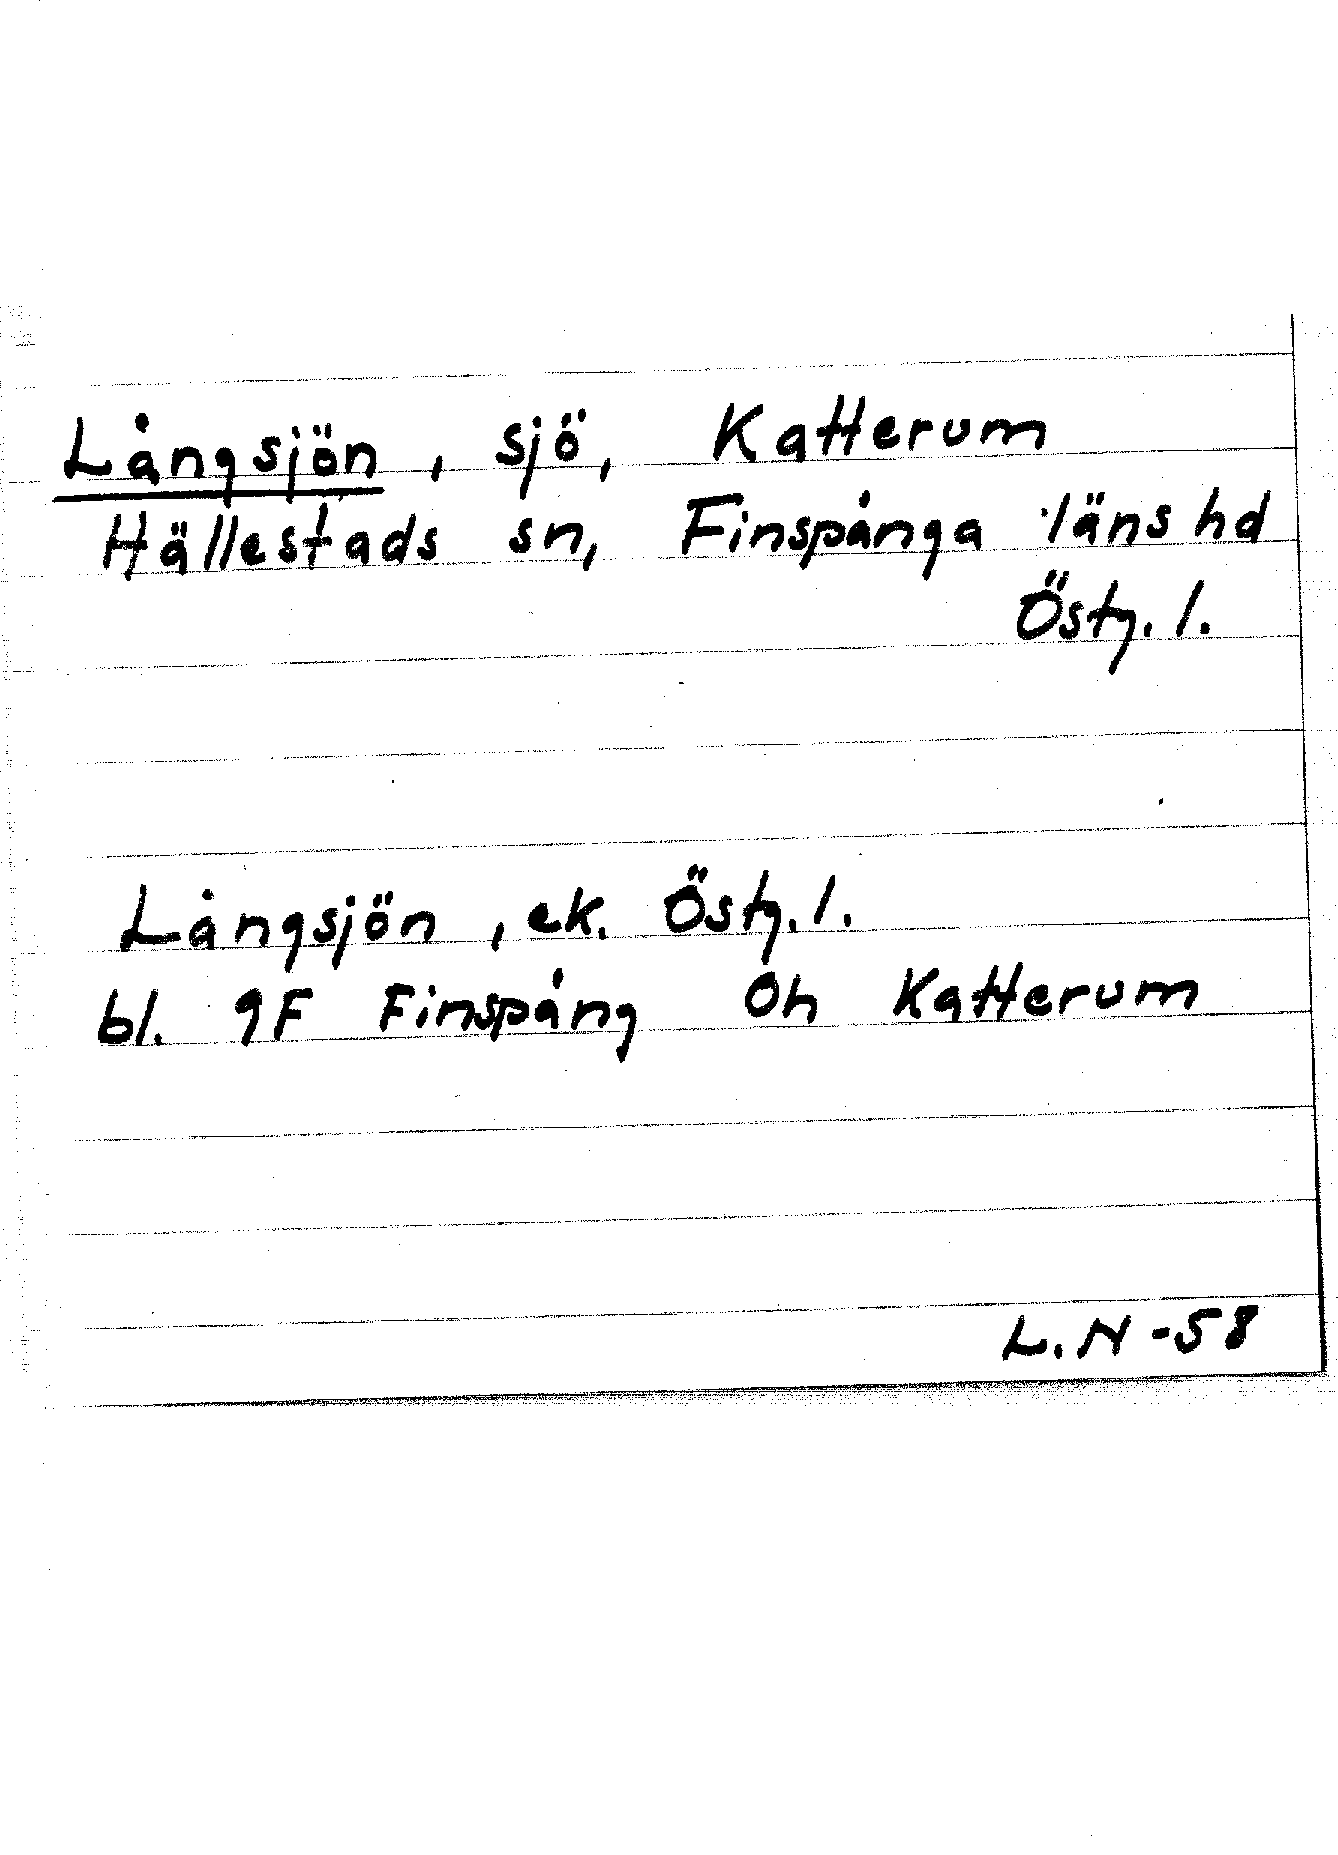 Långsjön, sjö, Katterum
Hällestads sn, Finspånga läns hd
Östg. l.
Långsjön, ek. Östg. l.
bl. 9F Finspång Oh Katterum
L. N -58